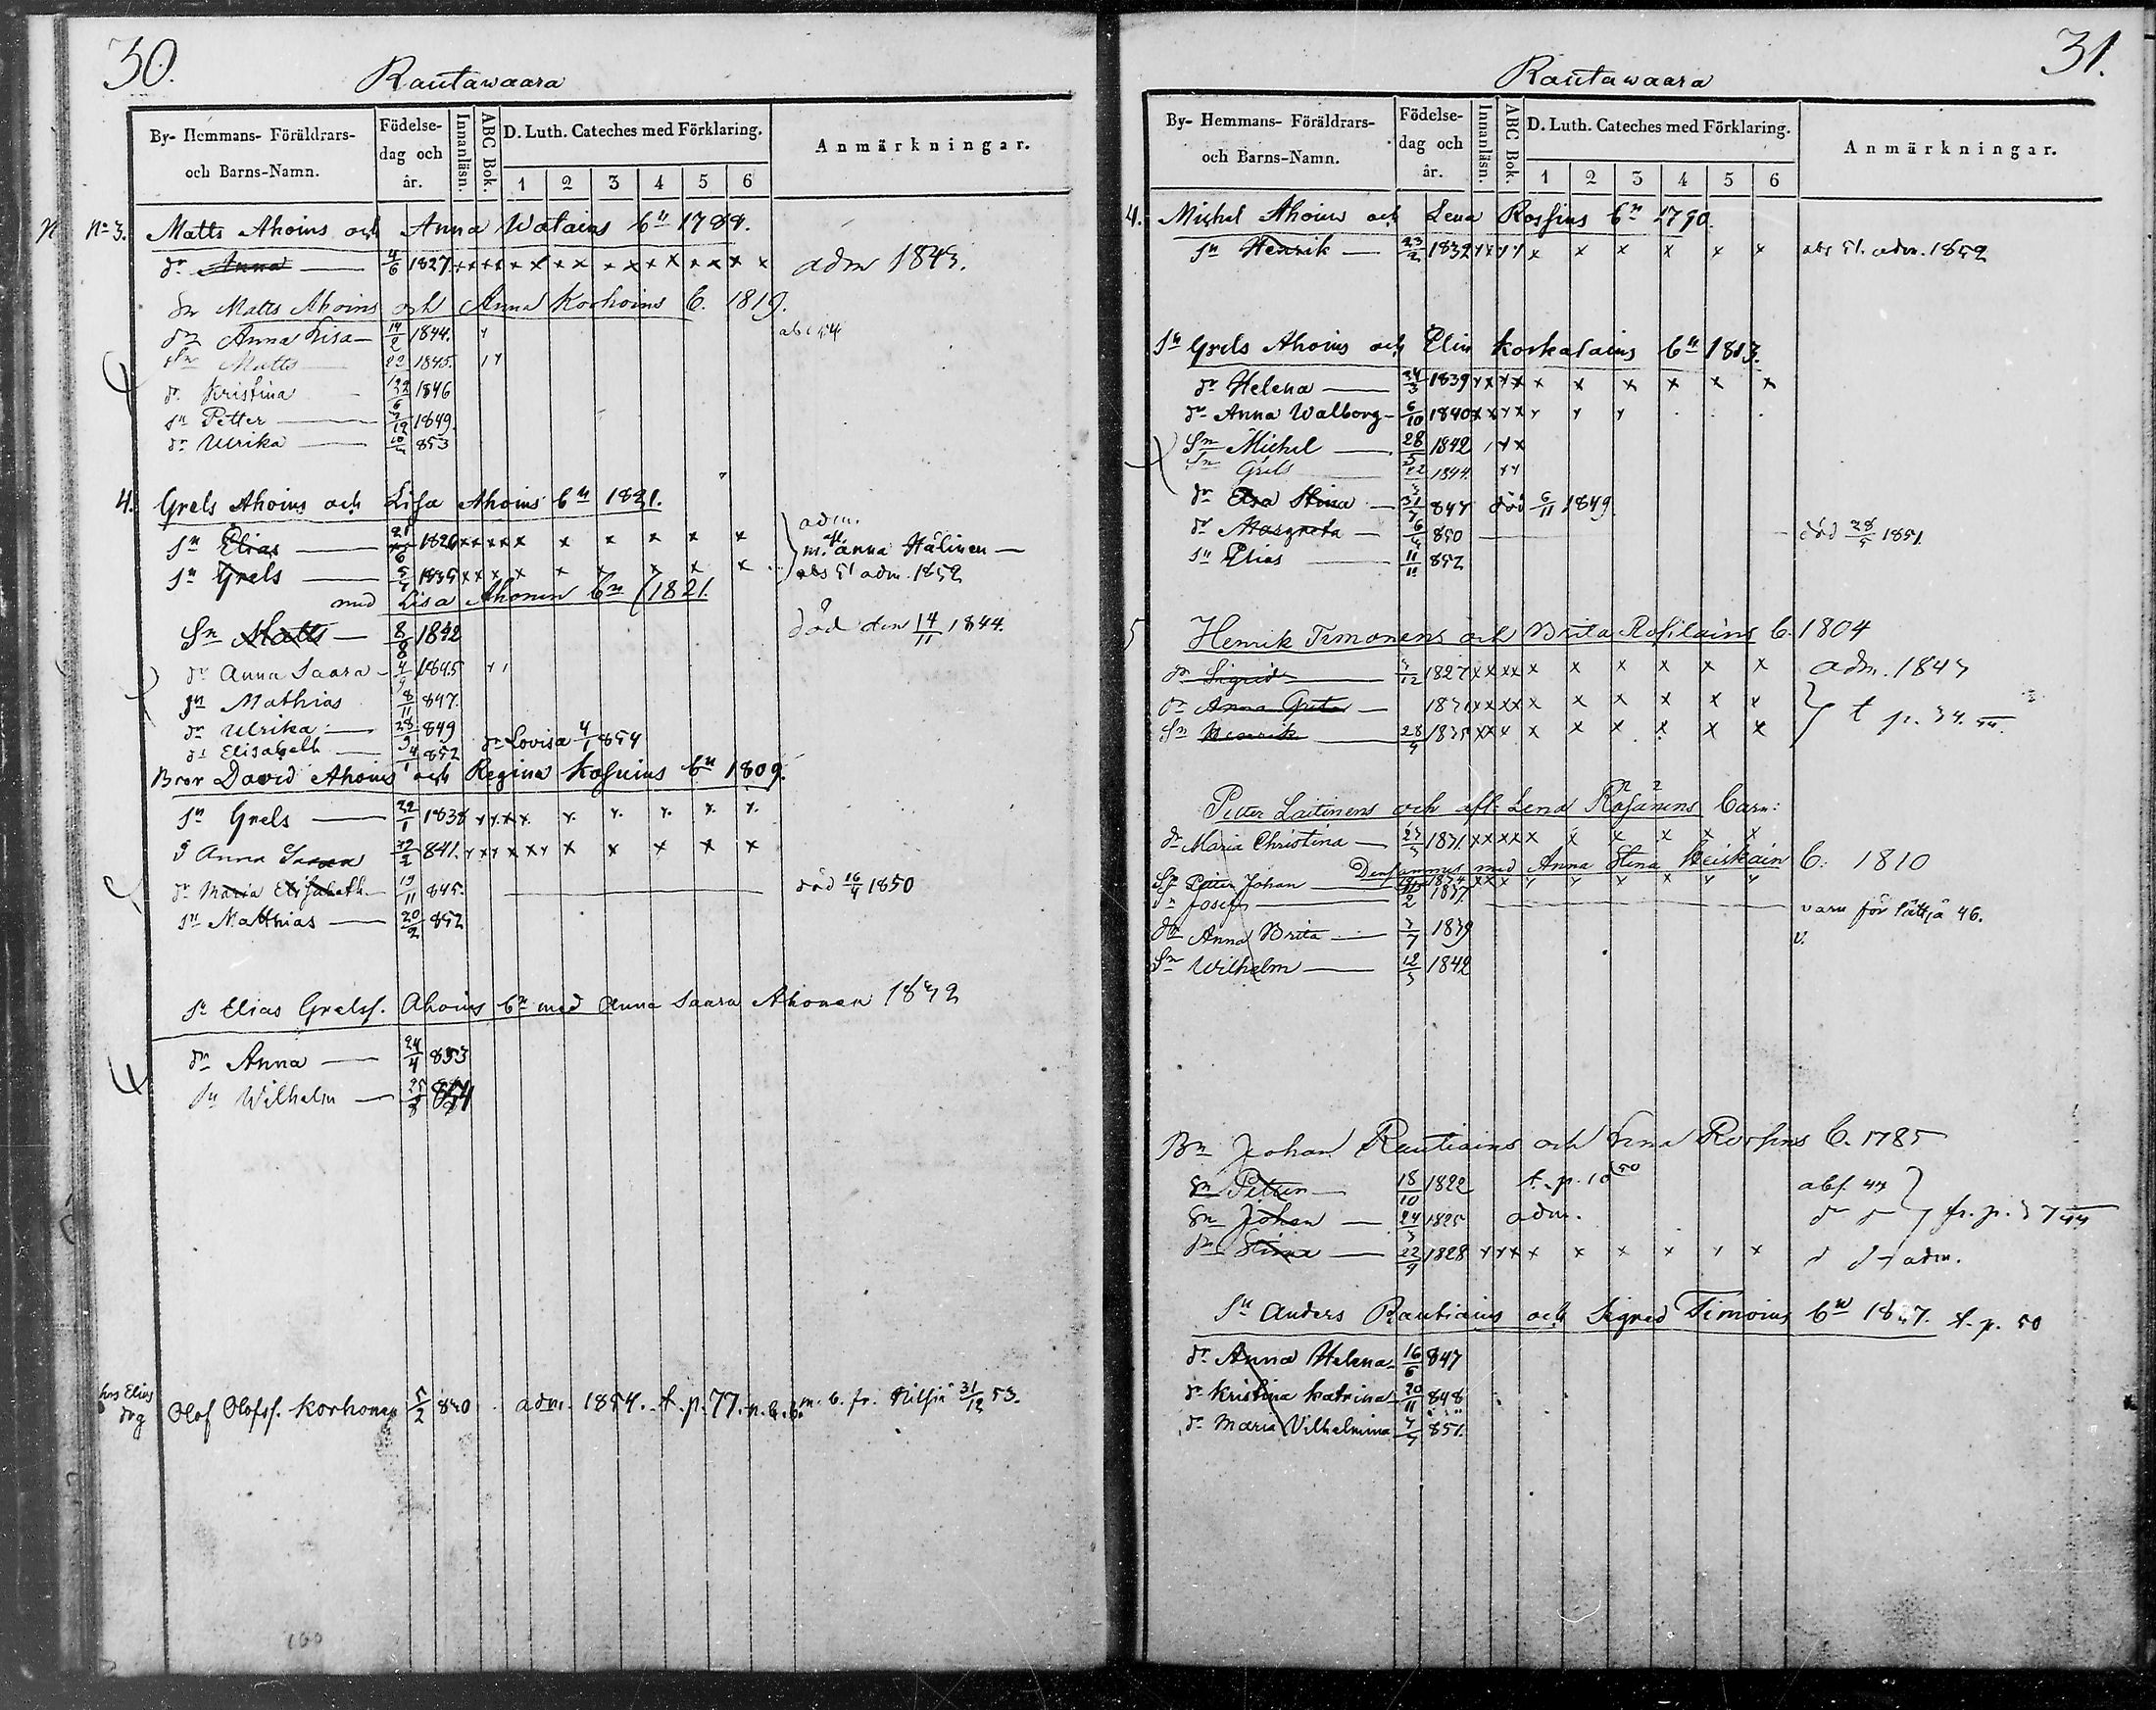 30.
Rautawaara
By- Hemmans- Föräldrars- och Barns-Namn.
Födelse- dag och år.
Innanläsn.
ABC Bok.
D. Luth. Cateches med Förklaring.
1 2 3 4 5 6
Anmärkningar.
N No 3. Matts Ahoins och Anna Watains bn 1788.
dr Anna 4/6 1827 x x x x x x x x x x x x x x adm 1843.
Sn Matts Ahoins och Anna Korhoins b. 1819.
dr Anna Lisa 14/2 1844.
Sn Matts 1845.
dr Kristina 1846
sn Petter 1849.
dr Ulrika 853
4. Grels Ahoins och Lisa Ahoins bn 1821.
sn Elias 1826 x x x x x x x x x x adm.
m. Anna Hälinen
sn Grels 1835 x x x x x x x x x abs 51 adm. 1852
med Lisa Ahonen bn (1821.
Sn Matts 8/8 1842 död den 14/11 1844.
dr Anna Saara 1845
sn Mathias 8/11 847.
dr Ulrika 28/9 849
dr Elisabeth 4/1 852 dr Lovisa 4/1 854
Bror David Ahoins och Regina Kosuins bn 1809.
sn Grels 22/1 1838 x x x x x x x x x
Anna Saara 841. x x x x x x x x x x
dr Maria Elisabeth 19/11 845. död 16/4 1850
sn Matthias 20/2 852
sn Elias Grelss. Ahoins bn med Anna Saara Ahonen 1832
dr Anna 24/4 853
sn Wilhelm 854
hos Elias drg Olof Olofss. Korhonen 5/2 840 adm. 1854. t. p. 77. m. b. fr. Nilsiä 31/12 53.
100
31.
Rautawaara
By- Hemmans- Föräldrars- och Barns-Namn.
Födelse- dag och år.
Innanläsn.
ABC Bok.
D. Luth. Cateches med Förklaring.
1 2 3 4 5 6
Anmärkningar.
4. Michel Ahoins och Lena Rossins bn 1790.
sn Henrik 23/2 1832 x x x x x x x x x x abs 51. adm. 1852
sn Grels Ahoins och Elin Korkalains bn 1813.
dr Helena 24/3 1839 x x x x x x x x x x
dr Anna Walborg 6/10 1840 x x x x x x x
Sn Michel 28/5 1842
Sn Grels 1844.
dr Eva Stina 31/7 847 död 6/11 1849.
dr Margreta 850 död 28/5 1851.
sn Elias 11/11 852
5 Henrik Timonens och Brita Rossilains b. 1804
dr Sigrid 1827 x x x x x x x x x x adm. 1843
dr Anna Greta 1831 x x x x x x x x x x
Sn Henrik 1835 x x x x x x x x x t p. 34.
Petter Laitinens och afl. Lena Rosanens barn:
dr Maria Christina 1831. x x x x x x x x x x
Densammes med Anna Stina Heiskain b. 1810
Sn Petter Johan 1834 x x x x x x x x x
Sn Josef 1837. varn för lättja 46.
dr Anna Brita 3/7 1839
Sn Wilhelm 1842
Bn Johan Rautiains och Lena Rossins b. 1785
Sn Petter 18/10 1822 t. p. 10
Sn Johan 1825 adm.
dr Stina 22/9 1828 x x x x x x x x x adm.
Sn Anders Rautiains och Sigrid Timoins bn 1827. t. p. 50
dr Anna Helena 16/6 847
dr Kristina Katrina 20/11 848
dr Maria Vilhelmina 851.